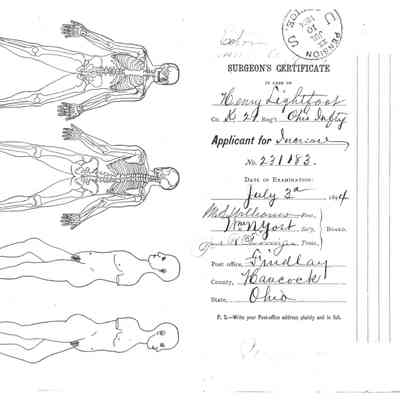 U.S. PENSION
JUL
10
SURGEON'S CERTIFICATE
IN CASE OF
Henry Lightfoot
Co. K 21 Reg't Ohio Infty
Applicant for Increase
No. 231183.
DATE OF EXAMINATION:
July 3d 1894
Pres.
Wm Yost Sec'y. Board.
Treas.
Post office, Findlay
County, Hancock
State, Ohio
P. S.—Write your Post-office address plainly and in full.